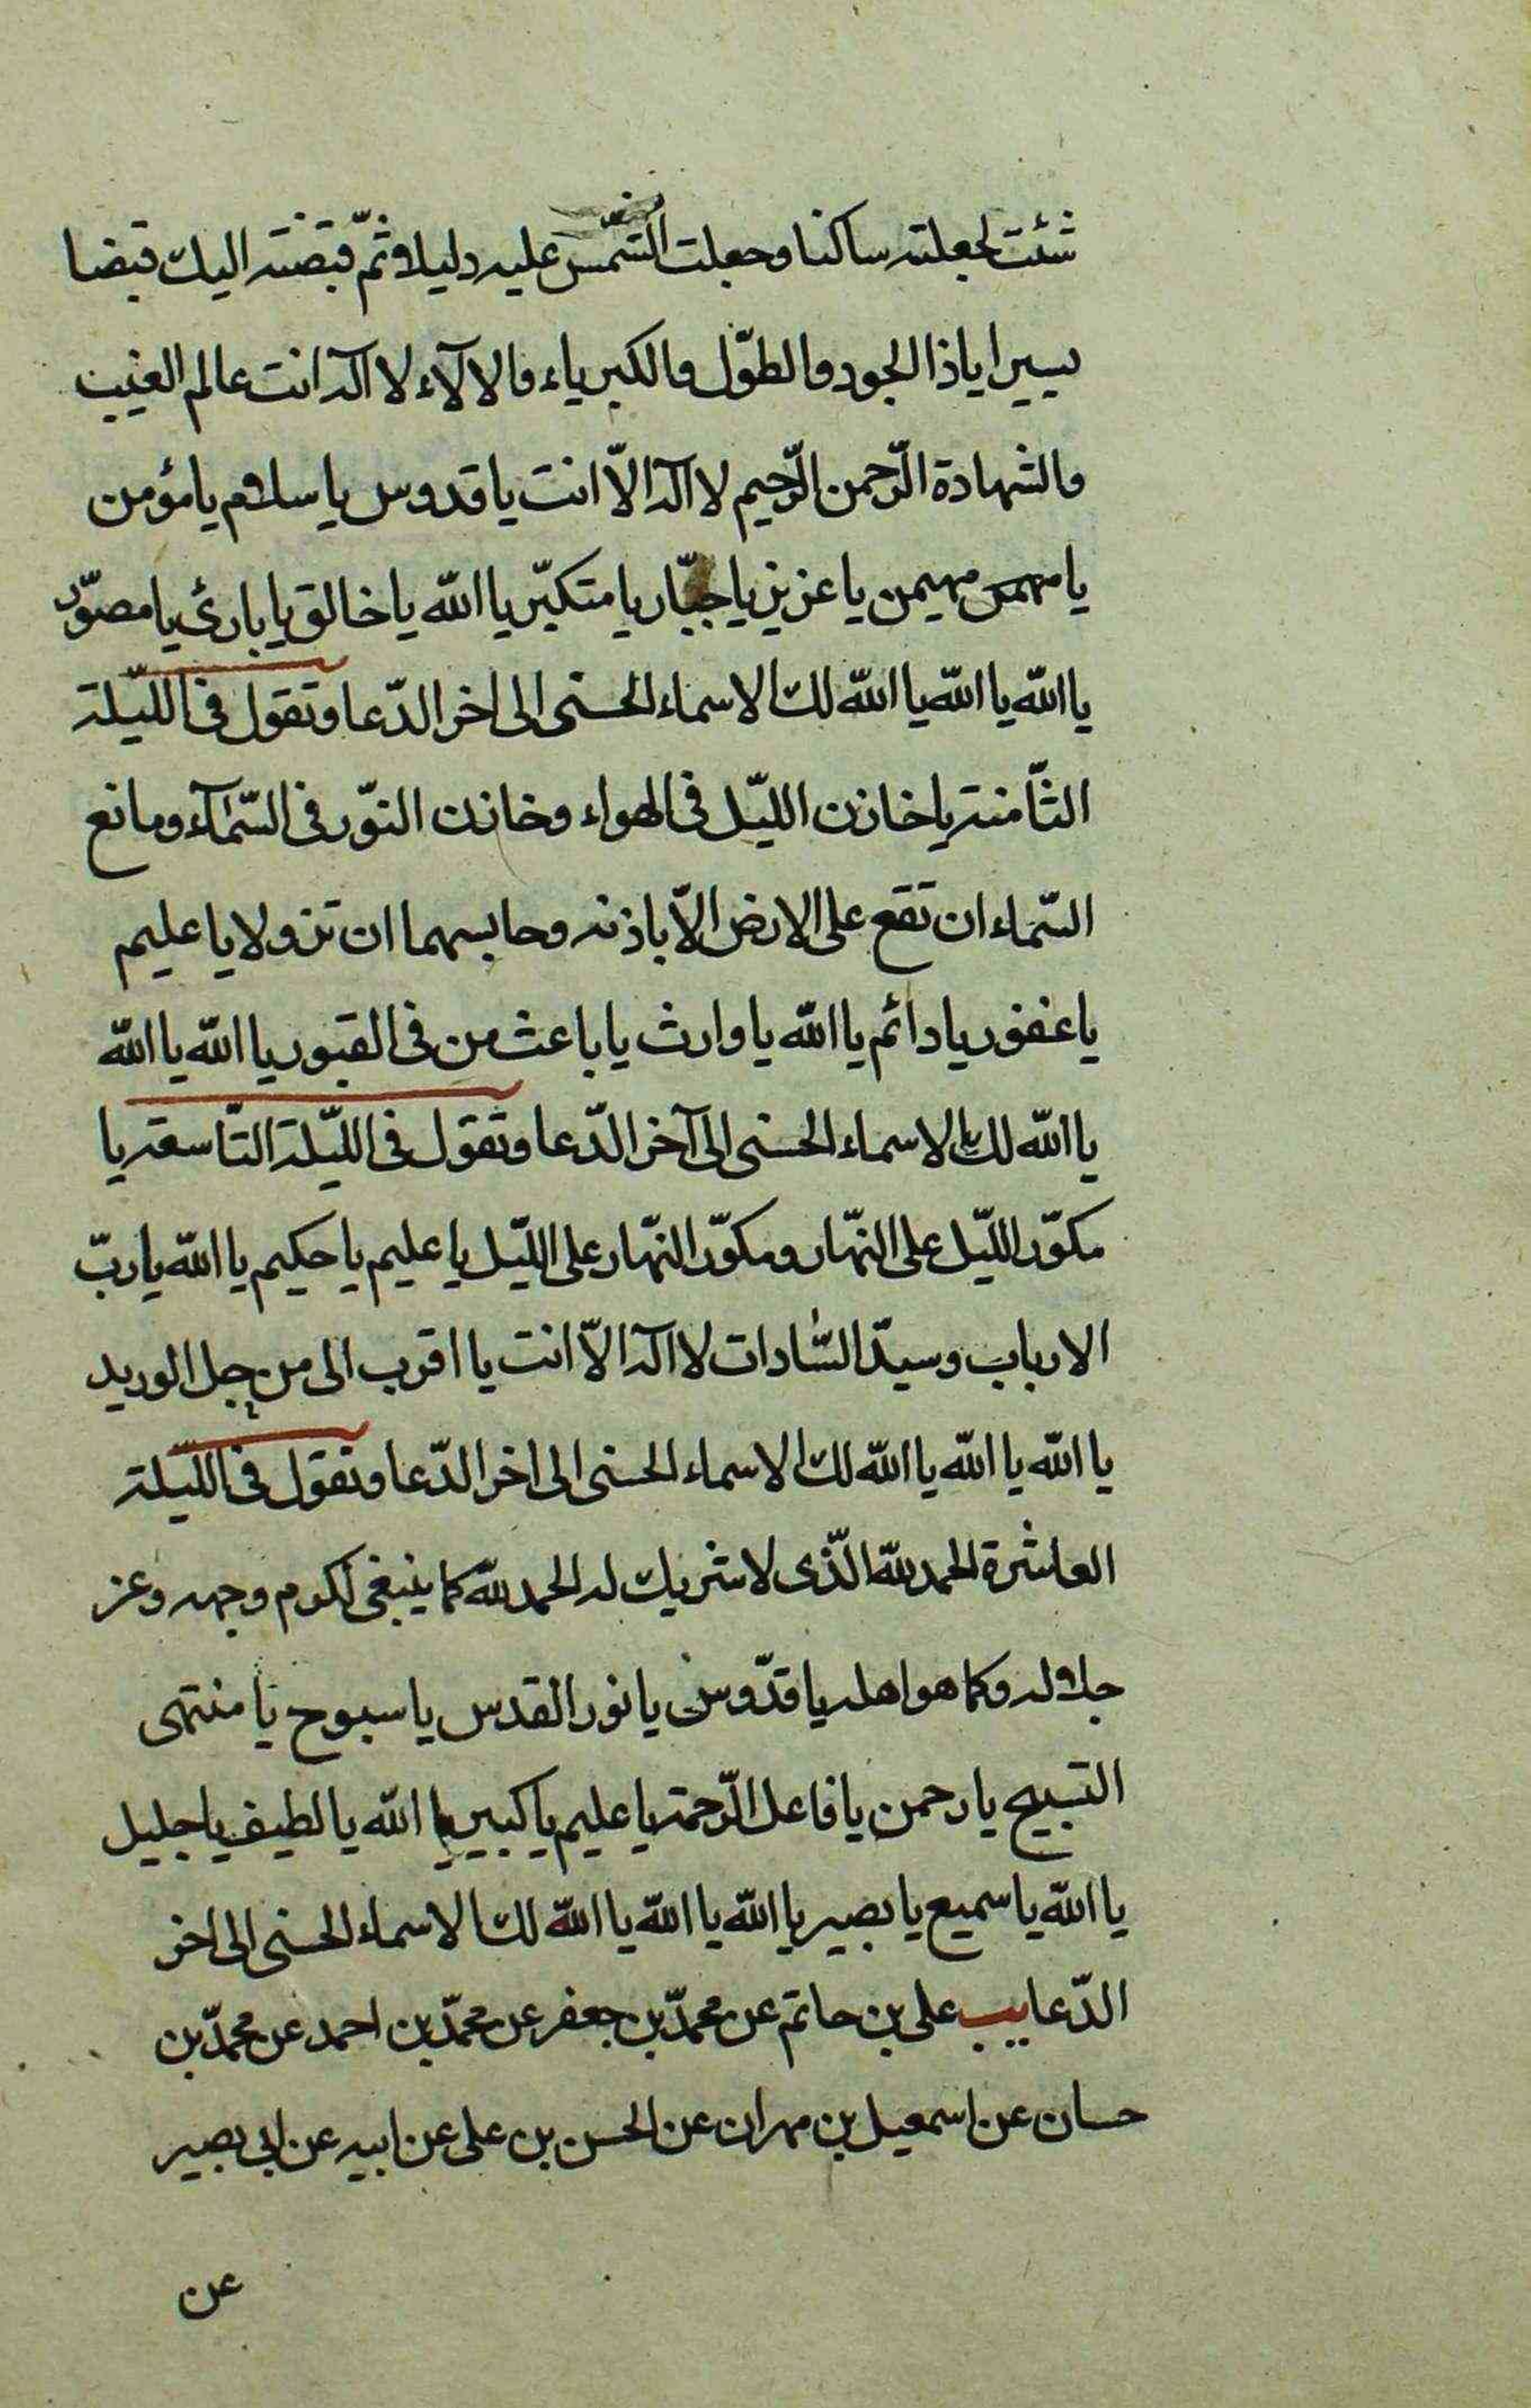 شئت لجعلته ساكنا وجعلت الشّمس عليه دليلا وثمّ قبضته اليك قبضا
يسيرا ياذا الجود والطوّل والكبرياء والالآء لا اله انت عالم الغيب
والشهادة الرّحمن الرّحيم لا اله الاّ انت يا قدوس يا سلام يا مؤمن
يا مهيمن يا عزيز يا جبّار يا متكبّر يا اللّه يا خالق يا بارئ يا مصوّر
يا اللّه يا اللّه يا اللّه لك الاسماء الحسنى الى اخر الدّعا وتقول فى اللّيلة
الثّامنة يا خازن اللّيل فى الهواء وخازن النوّر فى السّمآء ومانع
السّماء ان تقع على الارض الاّ باذنه وحابسهما ان تزولا يا عليم
يا غفور يا دائم يا اللّه يا وارث يا باعث من فى القبور يا اللّه يا اللّه
يا اللّه لك الاسماء الحسنى الى آخر الدّعا وتقول فى اللّيلة التّاسعة يا
مكوّر اللّيل على النّهار ومكوّر النّهار على اللّيل يا عليم يا حكيم يا اللّه يا ربّ
الارباب وسيدّ السّادات لا اله الاّ انت يا اقرب الى من حبل الوريد
يا اللّه يا اللّه يا اللّه لك الاسماء الحسنى الى اخر الدّعا وتقول فى اللّيلة
العاشرة الحمد للّه الّذى لا شريك له الحمد للّه كما ينبغى لكرم وجهه وعز
جلاله وكما هو اهله يا قدّوس يا نور القدس يا سبوح يا منتهى
التسبيح يا رحمن يا فاعل الرّحمة يا عليم يا كبير يا اللّه يا لطيف يا جليل
يا اللّه يا سميع يا بصير يا اللّه يا اللّه يا اللّه لك الاسماء الحسنى الى اخر
الدّعا يب على بن حاتم عن محمدّ بن جعفر عن محمدّ بن احمد عن محمدّ بن
حسان عن اسمعيل بن مهران عن الحسن بن على عن ابيه عن ابى بصير
عن